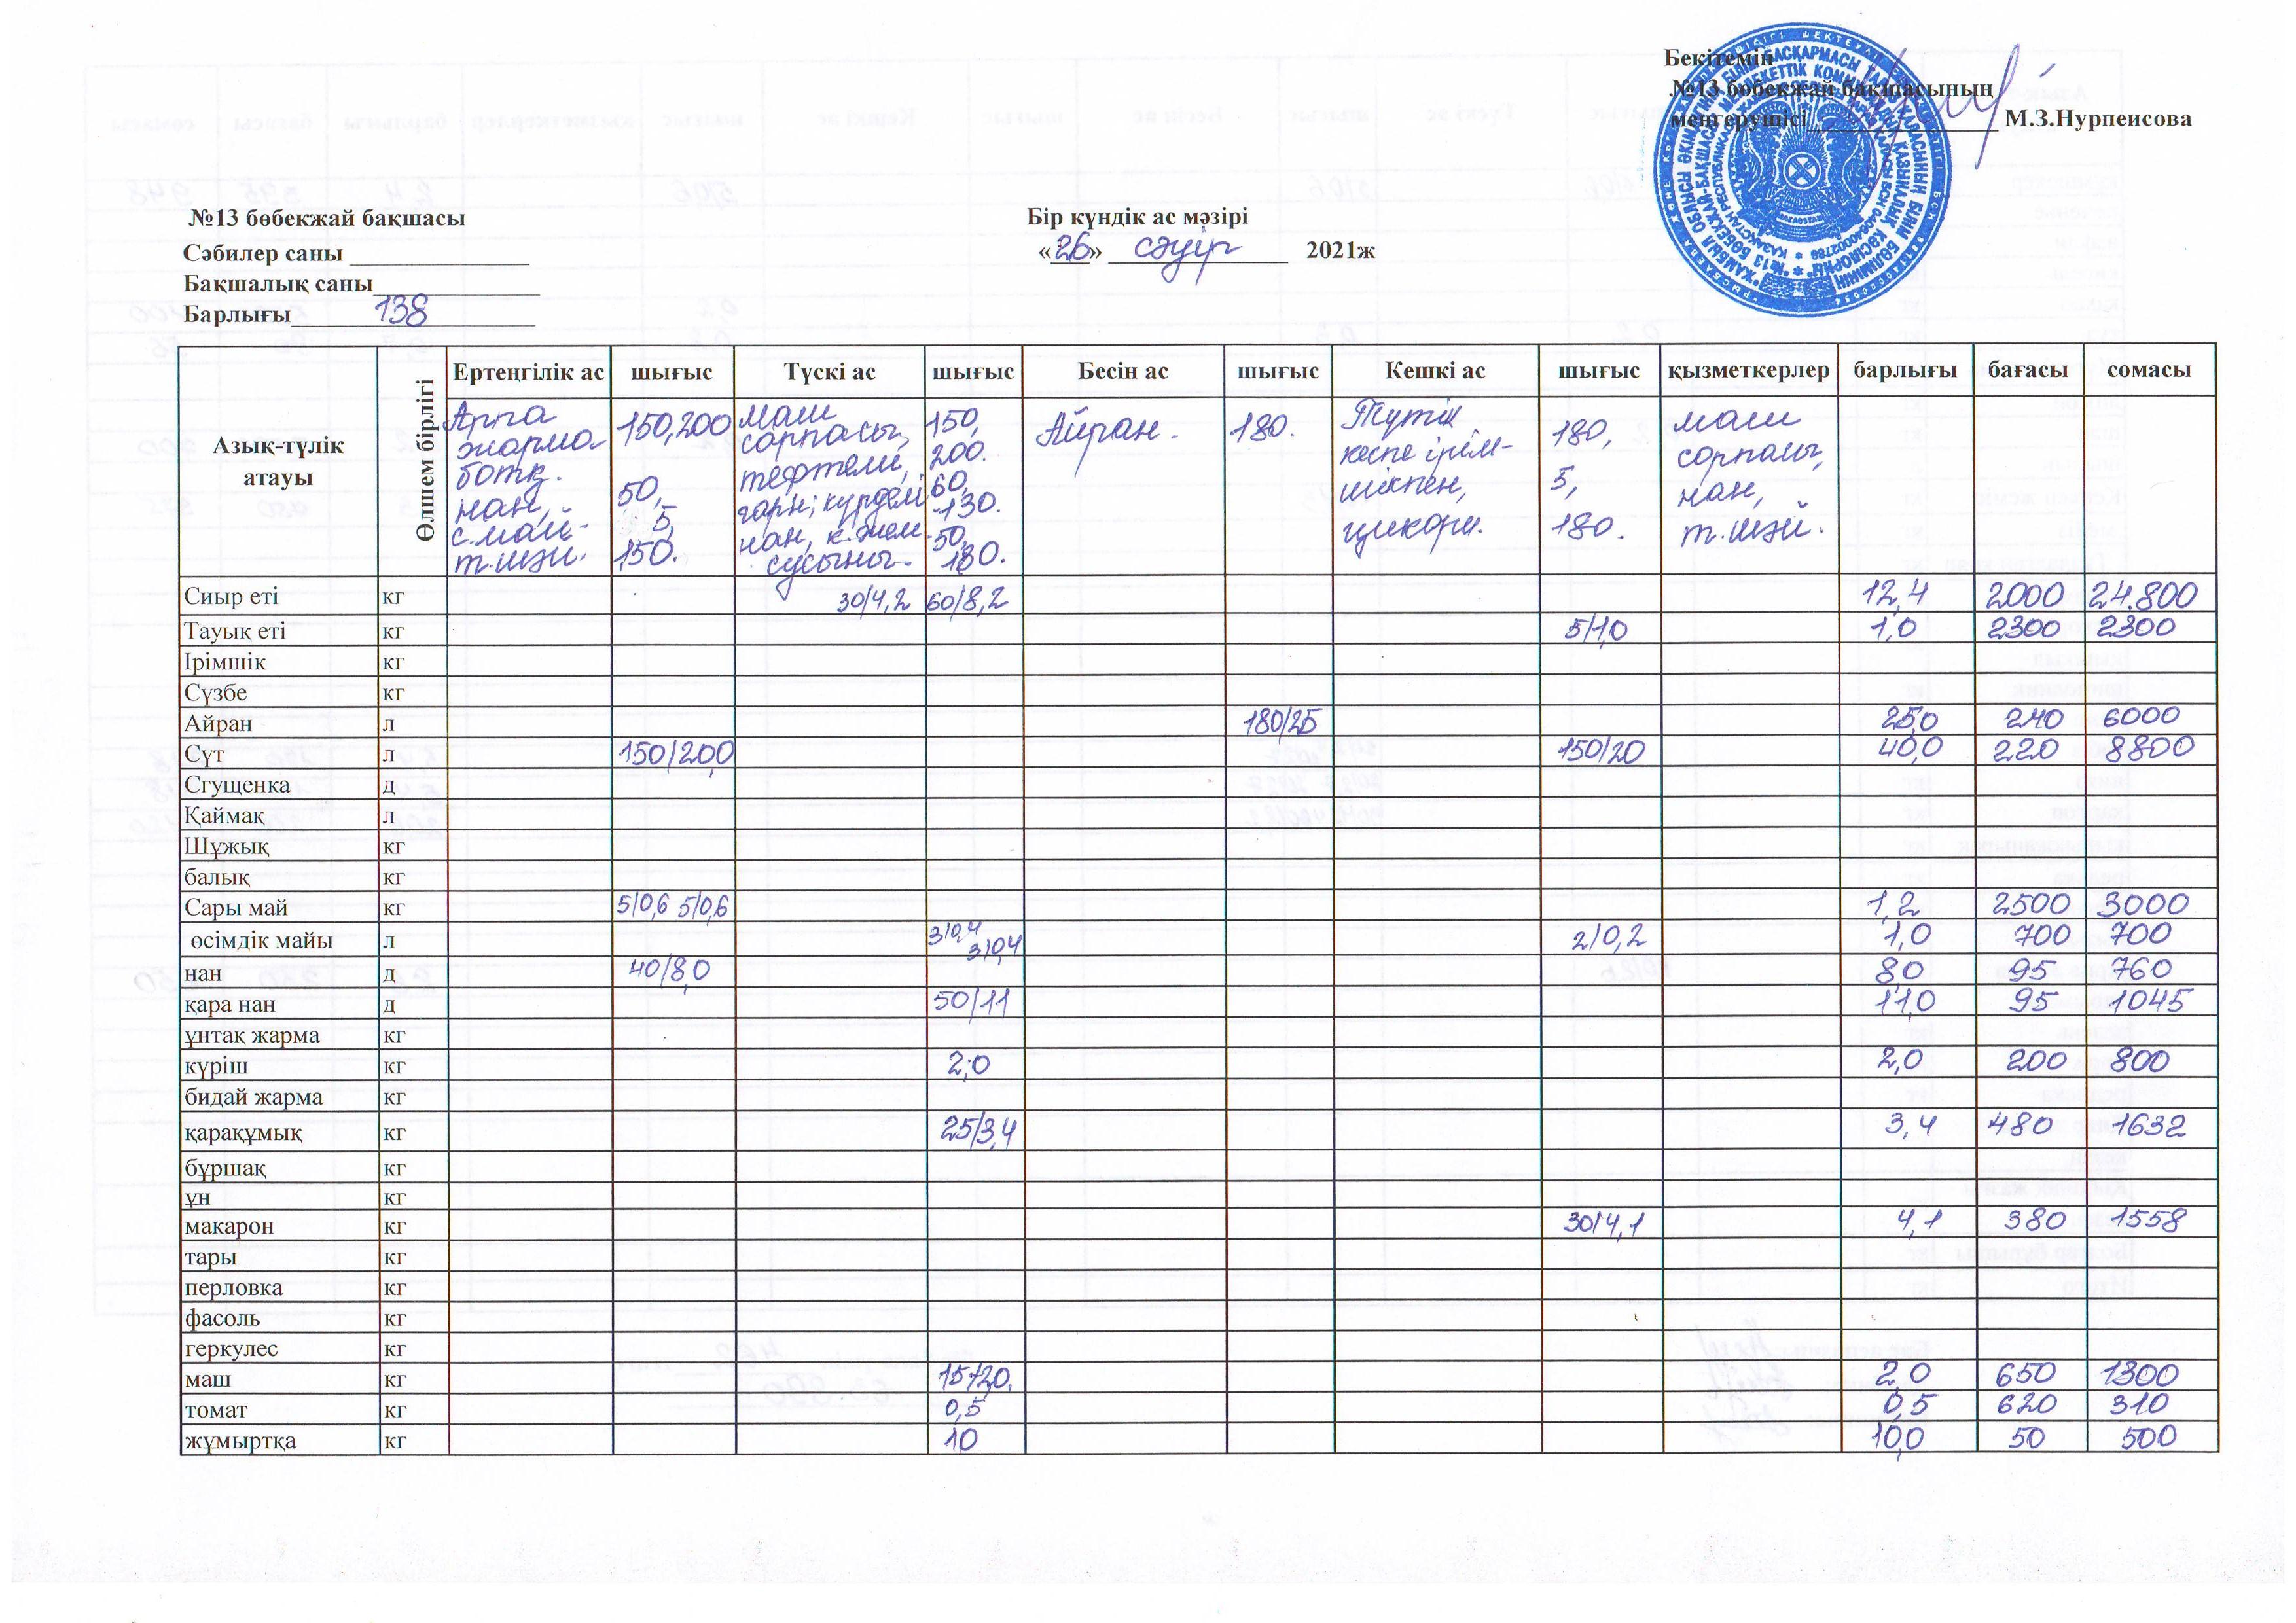 Бекітемін
№13 бөбекжай бақшасының
меңгерушісі ______________ М.З.Нурпеисова
№13 бөбекжай бақшасы
Бір күндік ас мәзірі
Сәбилер саны ______________
«26» сәуір 2021ж
Бақшалық саны______________
Барлығы 138
Азық-түлік атауы Өлшем бірлігі Ертеңгілік ас шығыс Түскі ас шығыс Бесін ас шығыс Кешкі ас шығыс қызметкерлер барлығы бағасы сомасы
Арпа жарма ботқ. нан, с.май- т.шәй. 150,200 50, 5, 150. маш сорпасы, тефтели, гарн; күрделі нан, к.жем. сусыны. 150, 200. 60, 130. 50, 180. Айран. 180. Түтік кеспе ірім- шікпен, цикори. 180, 5, 180. маш сорпасы, нан, т.шәй.
Сиыр еті кг 30/4,2 60/8,2 12,4 2000 24.800
Тауық еті кг 5/1,0 1,0 2300 2300
Ірімшік кг
Сүзбе кг
Айран л 180/25 25,0 240 6000
Сүт л 150/20,0 150/20 40,0 220 8800
Сгущенка д
Қаймақ л
Шұжық кг
балық кг
Сары май кг 5/0,6 5/0,6 1,2 2500 3000
өсімдік майы л 3/0,4 3/0,4 2/0,2 1,0 700 700
нан д 40/8,0 8,0 95 760
қара нан д 50/11 11,0 95 1045
ұнтақ жарма кг
күріш кг 2,0 2,0 200 800
бидай жарма кг
қарақұмық кг 25/3,4 3,4 480 1632
бұршақ кг
ұн кг
макарон кг 30/4,1 4,1 380 1558
тары кг
перловка кг
фасоль кг
геркулес кг
маш кг 15/2,0. 2,0 650 1300
томат кг 0,5 0,5 620 310
жұмыртқа кг 10 10,0 50 500